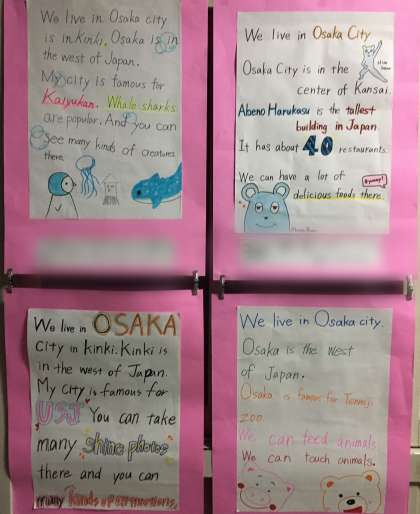 We live in Osaka city
is in Kinki. Osaka is in
the west of Japan.
My city is famous for
Kaiyukan. Whale sharks
are popular. And you can
see many kinds of creatures
there.
We live in Osaka City
Osaka City is in the
center of Kansai.
Abeno Harukasu is the tallest
building in Japan
It has about 40 restaurants.
We can have a lot of
delicious foods there.
We live in OSAKA
City in kinki. Kinki is
in the west of Japan.
My city is famous for
USJ You can take
many shine photos
there and you can
many kinds of attractions.
We live in Osaka city.
Osaka is the west
of Japan.
Osaka is famous for Tennoji
zoo.
We can feed animals
We can touch animals.